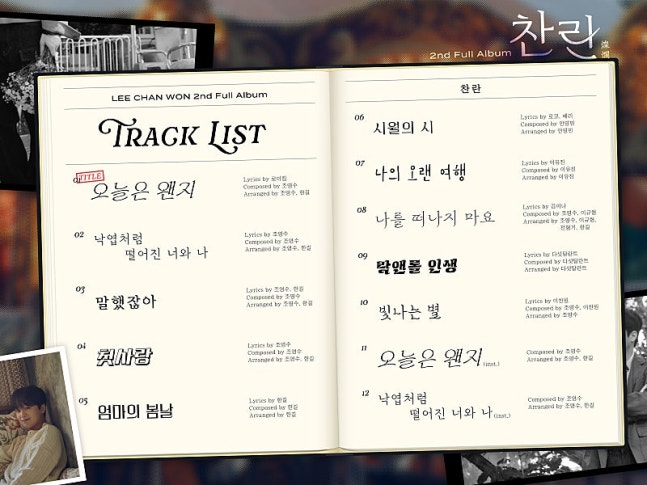 2nd Full Album 찬란
LEE CHAN WON 2nd Full Album
TRACK LIST
TITLE
오늘은 왠지
Lyrics by 로이킴
Composed by 조영수
Arranged by 조영수, 한길
02
낙엽처럼
떨어진 너와 나
Lyrics by 조영수
Composed by 조영수
Arranged by 조영수, 한길
03
말했잖아
Lyrics by 조영수, 한길
Composed by 조영수, 한길
Arranged by 조영수, 한길
04
첫사랑
Lyrics by 조영수
Composed by 조영수
Arranged by 조영수, 한길
05
엄마의 봄날
Lyrics by 한길
Composed by 한길
Arranged by 조영수, 한길
찬란
06
시월의 시
Lyrics by 로코베리
Composed by
Arranged by
07
나의 오랜 여행
Lyrics by 이유진
Composed by 이유진
Arranged by 이유진
08
나를 떠나지 마요
Lyrics by 김이나
Composed by 조영수, 이규현
Arranged by 조영수, 이규현,
한길
09
락앤롤 인생
Lyrics by 다섯달란트
Composed by 다섯달란트
Arranged by 다섯달란트
10
빛나는 별
Lyrics by 이찬원
Composed by 조영수, 이찬원
Arranged by 조영수
11
오늘은 왠지 (inst.)
Composed by 조영수
Arranged by 조영수, 한길
12
낙엽처럼
떨어진 너와 나 (inst.)
Composed by 조영수
Arranged by 조영수, 한길